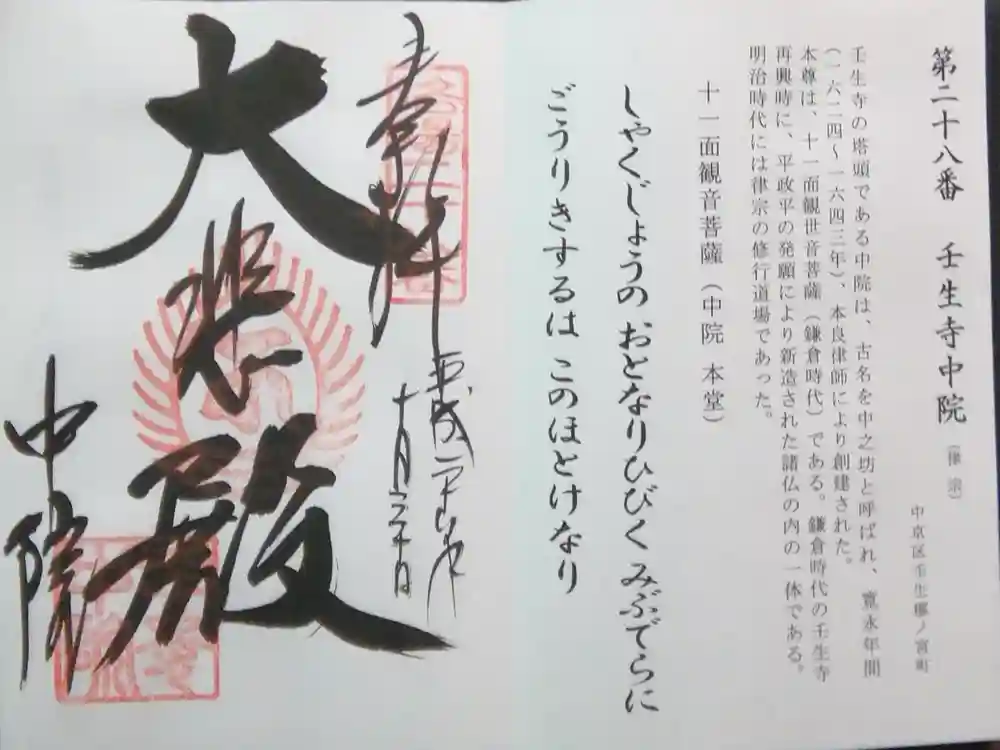 第二十八番 壬生寺中院 (律宗)
中京区壬生梛ノ宮町
壬生寺の塔頭である中院は、古名を中之坊と呼ばれ、寛永年間
(一六二四〜一六四三年)、本良律師により創建された。
本尊は、十一面観世音菩薩(鎌倉時代)である。鎌倉時代の壬生寺
再興時に、平政平の発願により新造された諸仏の内の一体である。
明治時代には律宗の修行道場であった。
十一面観音菩薩(中院 本堂)
しやくじょうの おとなりひびく みぶでらに
ごうりきするは このほとけなり
奉拝
平成二十
十月二十日
大悲殿
中院